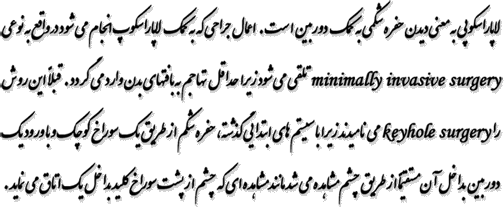 لاپاراسکوپی به معنی دیدن حفره شکمی به کمک دوربین است. اعمال جراحی که به کمک لاپاراسکوپ انجام می شود در واقع به نوعی
minimally invasive surgery تلقی می شود زیرا حداقل تهاجم به بافتهای بدن وارد می گردد. قبلاً این روش
را keyhole surgery می نامیدند زیرا با سیستم های ابتدایی گذشته، حفره شکم از طریق یک سوراخ کوچک و با ورود یک
دوربین بداخل آن مستقیماً از طریق چشم مشاهده می شد مانند مشاهده ای که چشم از پشت سوراخ کلید بداخل یک اتاق می نماید.